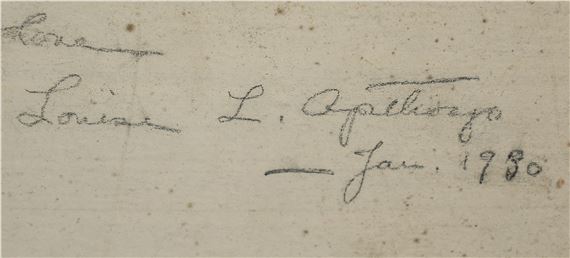 Love
Louise L. Apthorp
— Jan. 1930